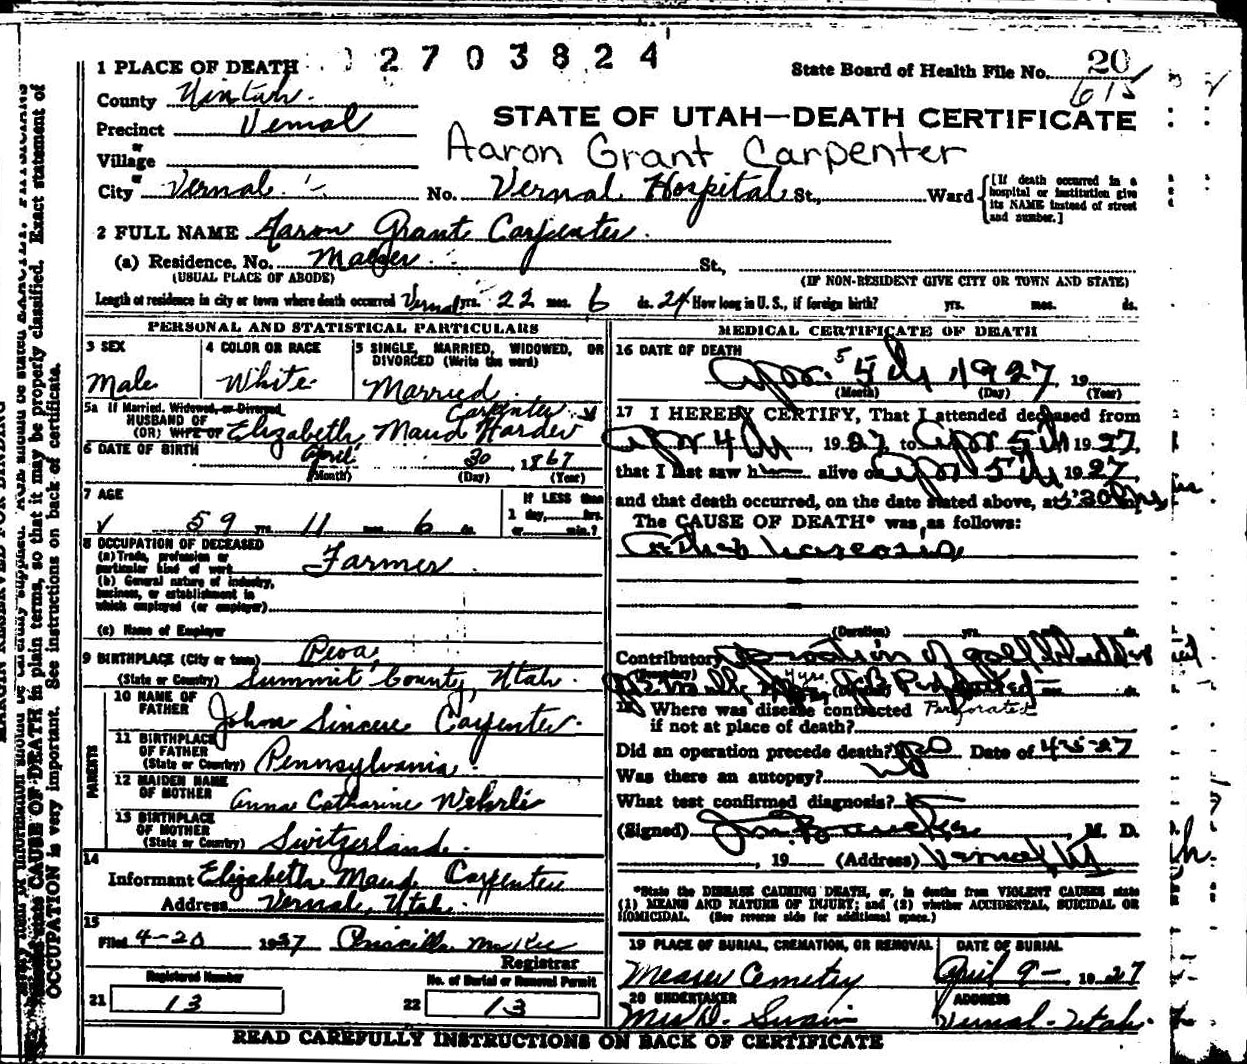 2 7 0 3 8 2 4
1 PLACE OF DEATH
State Board of Health File No. 20
615
County Uintah
STATE OF UTAH—DEATH CERTIFICATE
Precinct Vernal
or
Village
Aaron Grant Carpenter
or
City Vernal No. Vernal Hospital St., Ward
[If death occurred in a hospital or institution give its NAME instead of street and number.]
2 FULL NAME Aaron Grant Carpenter
(a) Residence. No. Maeser St.,
(USUAL PLACE OF ABODE) (IF NON-RESIDENT GIVE CITY OR TOWN AND STATE)
Length of residence in city or town where death occurred Vernal yrs. 22 mos. 6 ds. 24 How long in U. S., if foreign birth? yrs. mos. ds.
PERSONAL AND STATISTICAL PARTICULARS
3 SEX
Male
4 COLOR OR RACE
White
5 SINGLE, MARRIED, WIDOWED, OR DIVORCED (Write the word)
Married
5a If Married, Widowed, or Divorced
HUSBAND OF
(OR) WIFE OF Elizabeth Maud Harder
Carpenter
6 DATE OF BIRTH April 30, 1867
(Month) (Day) (Year)
7 AGE
59 yrs. 11 mos. 6 ds.
If LESS than
1 day, hrs.
or min.?
8 OCCUPATION OF DECEASED
(a) Trade, profession or particular kind of work Farmer
(b) General nature of industry, business, or establishment in which employed (or employer)
(c) Name of Employer
9 BIRTHPLACE (City or town) Peoa,
(State or Country) Summit County, Utah
PARENTS
10 NAME OF FATHER John Sincere Carpenter
11 BIRTHPLACE OF FATHER (State or Country) Pennsylvania
12 MAIDEN NAME OF MOTHER Anna Catharine Wehrli
13 BIRTHPLACE OF MOTHER (State or Country) Switzerland
14
Informant Elizabeth Maud Carpenter
Address Vernal, Utah
15
Filed 4-20 1927 Priscilla McKee
Registrar
Registered Number
21 13
No. of Burial or Removal Permit
22 13
MEDICAL CERTIFICATE OF DEATH
16 DATE OF DEATH
5
Apr. 5th 1927, 19
(Month) (Day) (Year)
17 I HEREBY CERTIFY, That I attended deceased from
Apr 4th 1927 to Apr 5th 1927,
that I last saw h alive on Apr 5th 1927,
and that death occurred, on the date stated above, at
The CAUSE OF DEATH* was as follows:
(Duration) yrs. mos. ds.
Contributory Operation of gall bladder
4 yrs. Perforated
Perforated
18 Where was disease contracted
if not at place of death?
Did an operation precede death? Date of 4-5-27
Was there an autopsy? no
What test confirmed diagnosis?
(Signed) , M. D.
, 19 (Address) Vernal
*State the DISEASE CAUSING DEATH, or, in deaths from VIOLENT CAUSES state
(1) MEANS AND NATURE OF INJURY; and (2) whether ACCIDENTAL, SUICIDAL OR
HOMICIDAL. (See reverse side for additional space.)
19 PLACE OF BURIAL, CREMATION, OR REMOVAL
Maeser Cemetry
DATE OF BURIAL
April 9— 1927
20 UNDERTAKER
Mrs D. Swain
ADDRESS
Vernal-Utah.
READ CAREFULLY INSTRUCTIONS ON BACK OF CERTIFICATE
MARGIN RESERVED FOR BINDING
CAUSE OF DEATH in plain terms, so that it may be properly classified. Exact statement of
OCCUPATION is very important. See instructions on back of certificate.